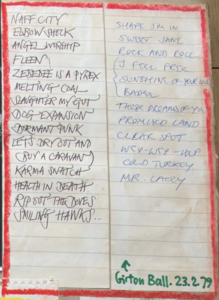 NAFF CITY
ELBOW SHOCK
ANGEL WORSHIP
FLEEN
IS A PYREX
MELTING COAL
SLAUGHTER MY GUT
DOG EXPANSION
PUNK
LET'S DRY OUT AND
(BUY A CARAVAN)
KARMA SNATCH
HEALTH IN DEATH
RIP OUT THE DOVES
SMILING HAWKS..
SHAPE I'M IN
SWEET JANE
ROCK AND ROLL
I FOOL
SUNSHINE OF YOUR LOVE
THESE
PROMISED LAND
CLEAR SPOT
COLD TURKEY
MR.
Girton Ball. 23.2.79